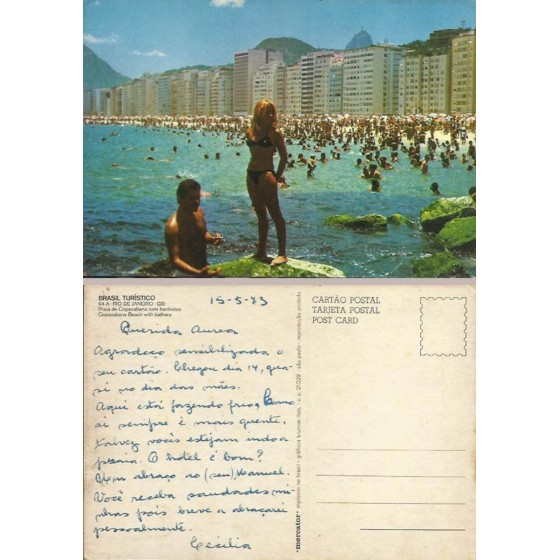 BRASIL TURÍSTICO
64 A · RIO DE JANEIRO · GB
Praia de Copacabana com banhistas
Copacabana Beach with bathers
15-5-73
Querida Aurea
Agradeço sensibilizada o
seu cartão. Chegou dia 14, qua-
si no dia das mães.
Aqui está fazendo frio, Como
ai sempre é mais quente,
talvez vocês estejam indo a
praia. O hotel é bom?
Um abraço ao (seu) Manuel.
Você receba saudades mi-
nhas pois breve a abraçarei
pessoalmente.
Cecília
CARTÃO POSTAL
TARJETA POSTAL
POST CARD
•mercator• impresso no brasil - gráficos brunner ltda. - são paulo - reprodução proibida